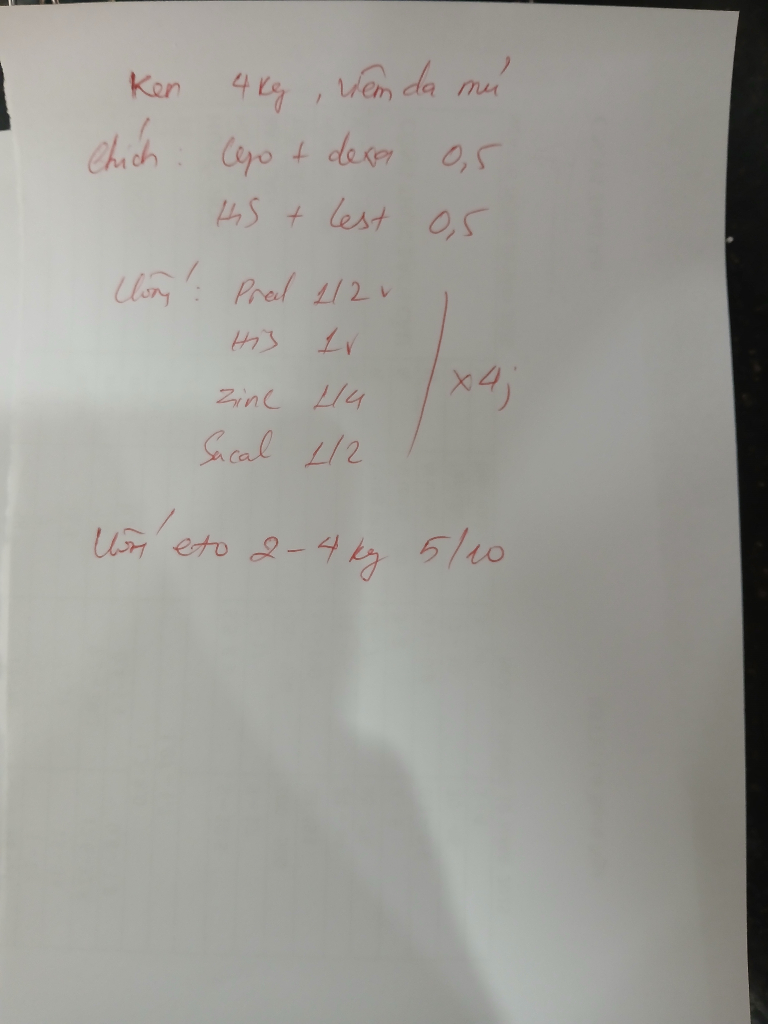 Ken 4kg, viêm da mủ
Chích: Cepo + dexa 0,5
HiS + Lest 0,5
Uống: Pred 1/2 v
HiS 1v
Zinc 1/4
Sucal 1/2
x4j
Uống 2-4kg 5/10